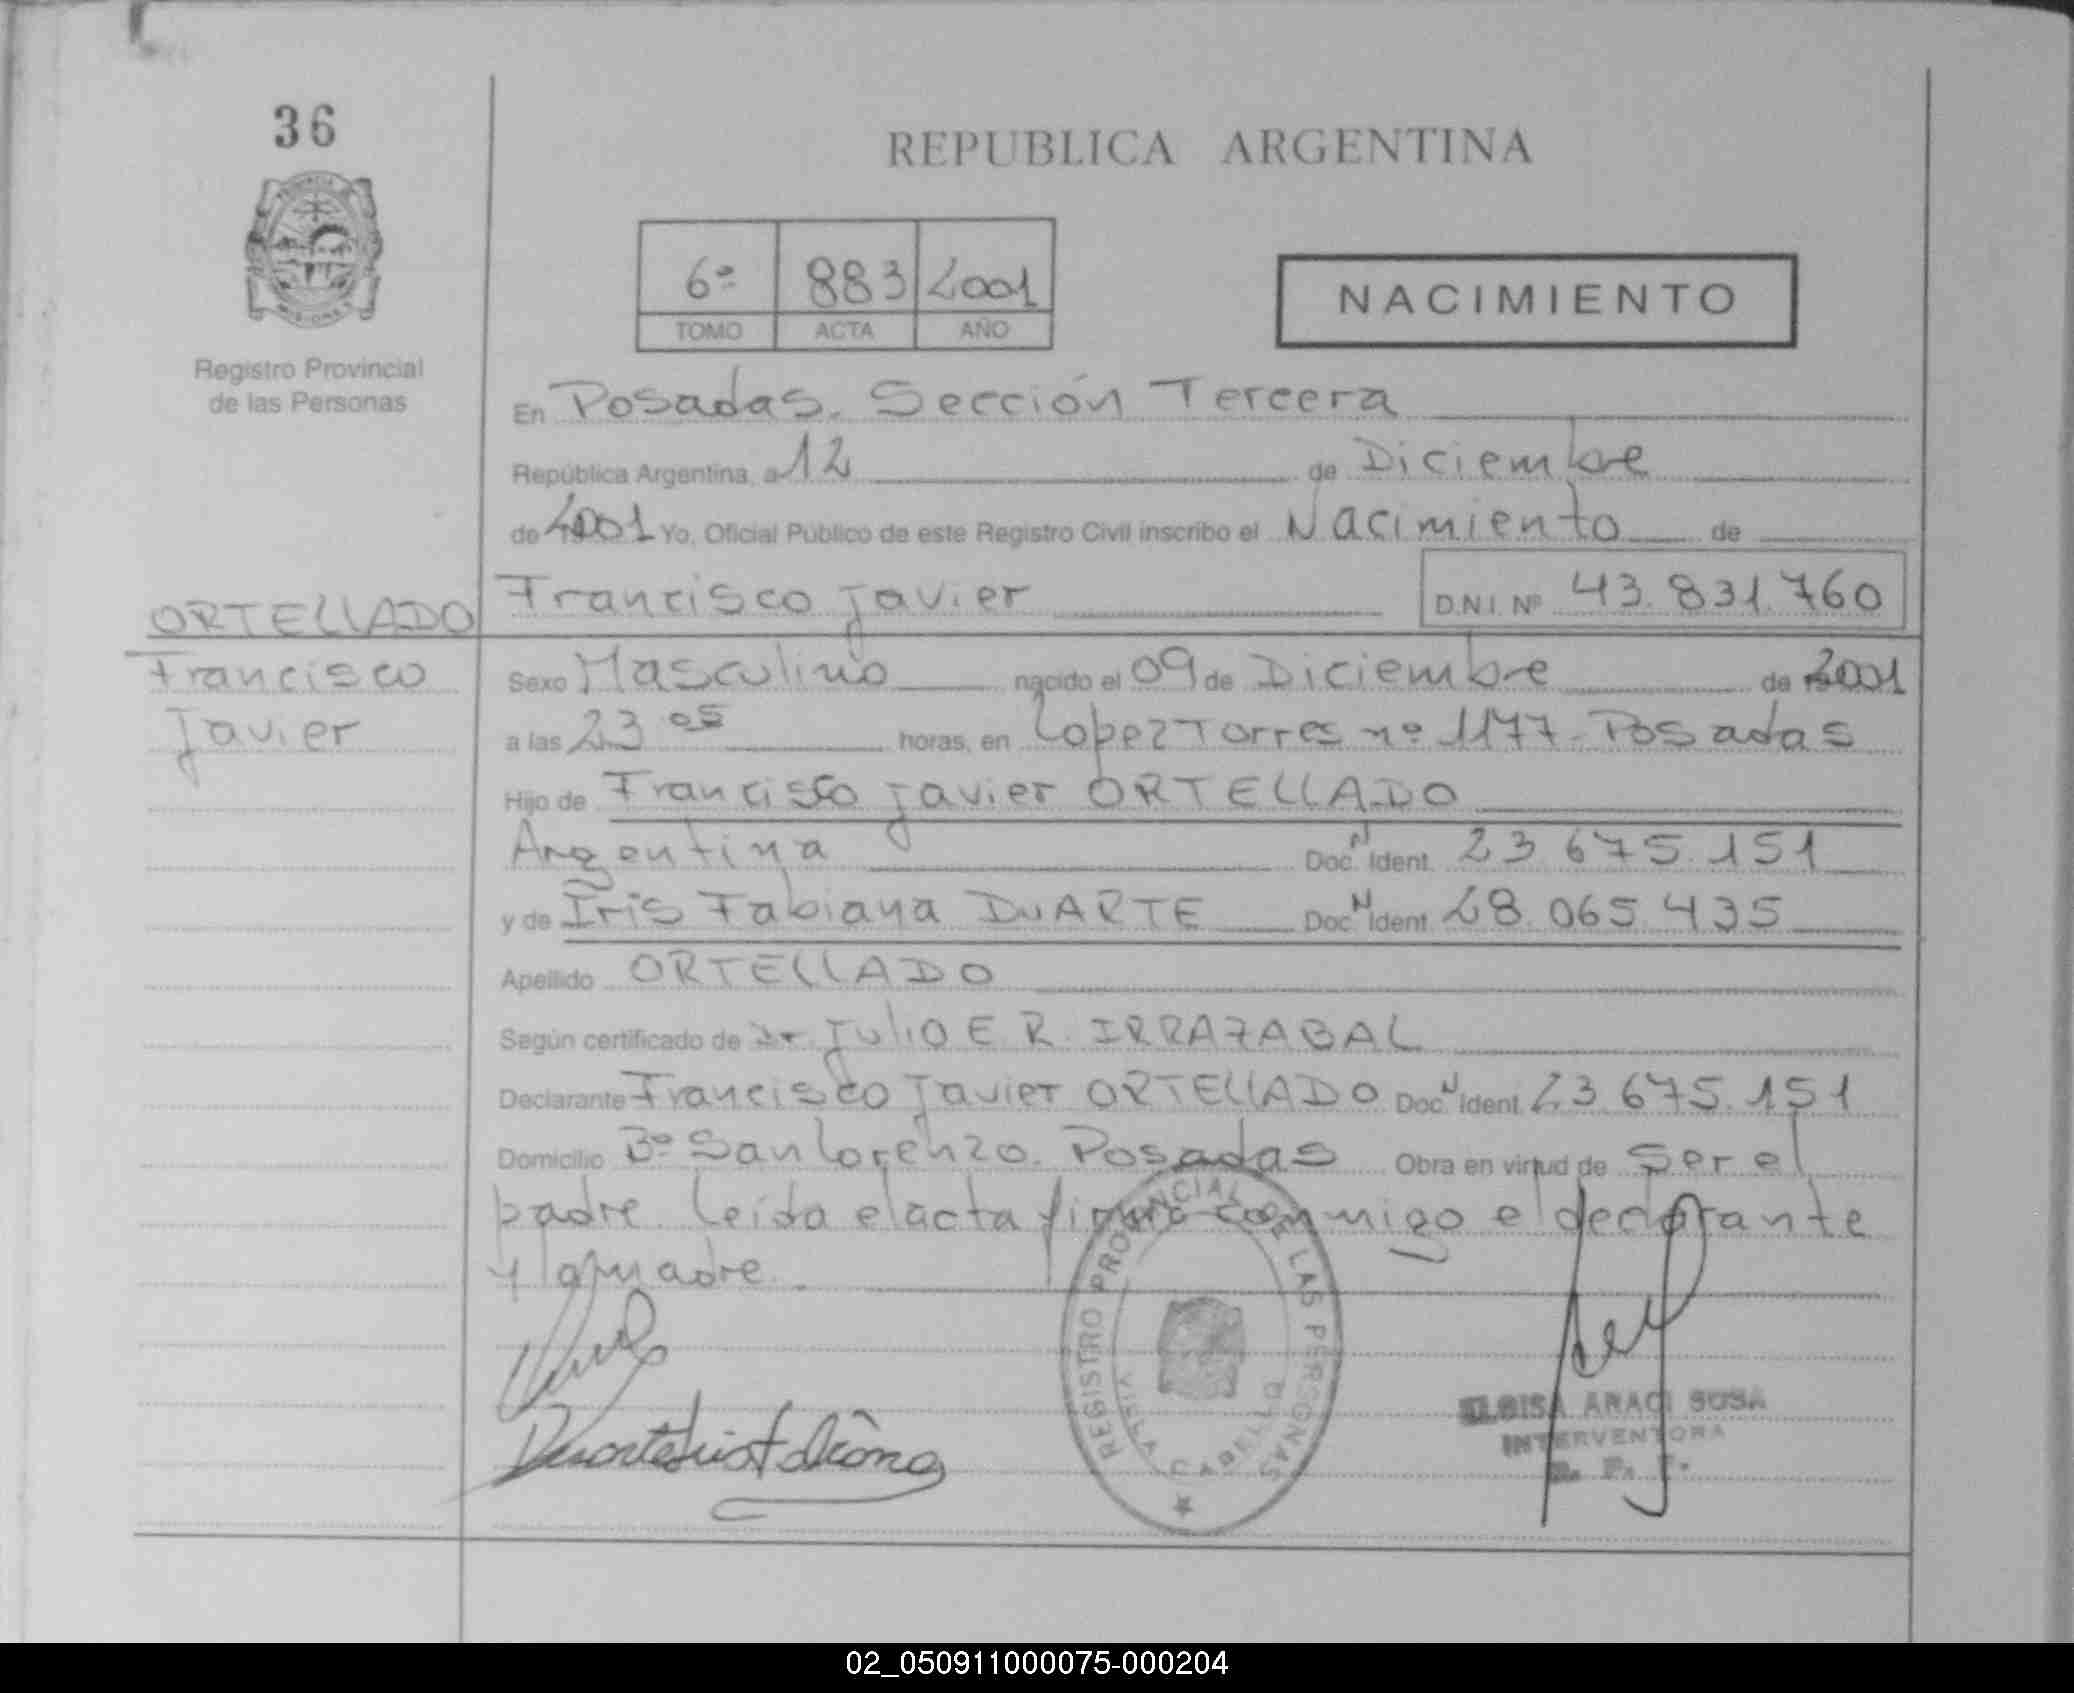 36
REPUBLICA ARGENTINA
6º 883 2001
TOMO ACTA AÑO
NACIMIENTO
Registro Provincial
de las Personas
En Posadas. Sección Tercera
República Argentina, a 12 de Diciembre
de 2001 Yo, Oficial Público de este Registro Civil inscribo el Nacimiento de
Francisco Javier D.N.I. Nº 43.831.760
ORTELLADO
Francisco
Javier
Sexo Masculino nacido el 09 de Diciembre de 2001
a las 23 05 horas, en Lopez Torres nº 1177 - Posadas
Hijo de Francisco Javier ORTELLADO
Argentina Doc. N Ident. 23.675.151
y de Iris Fabiana DUARTE Doc. N Ident. 28.065.435
Apellido ORTELLADO
Según certificado de Dr. Julio E. R. IRRAZABAL
Declarante Francisco Javier ORTELLADO Doc. N Ident. 23.675.151
Domicilio Bº San Lorenzo. Posadas Obra en virtud de Ser el
padre. Leída el acta firma conmigo el declarante
y la madre.
REGISTRO PROVINCIAL DE LAS PERSONAS
VILLA CABELLO
Duarte Iris Fabiana
ELOISA ARACI SOSA
INTERVENTORA
R. P. P.
02_050911000075-000204